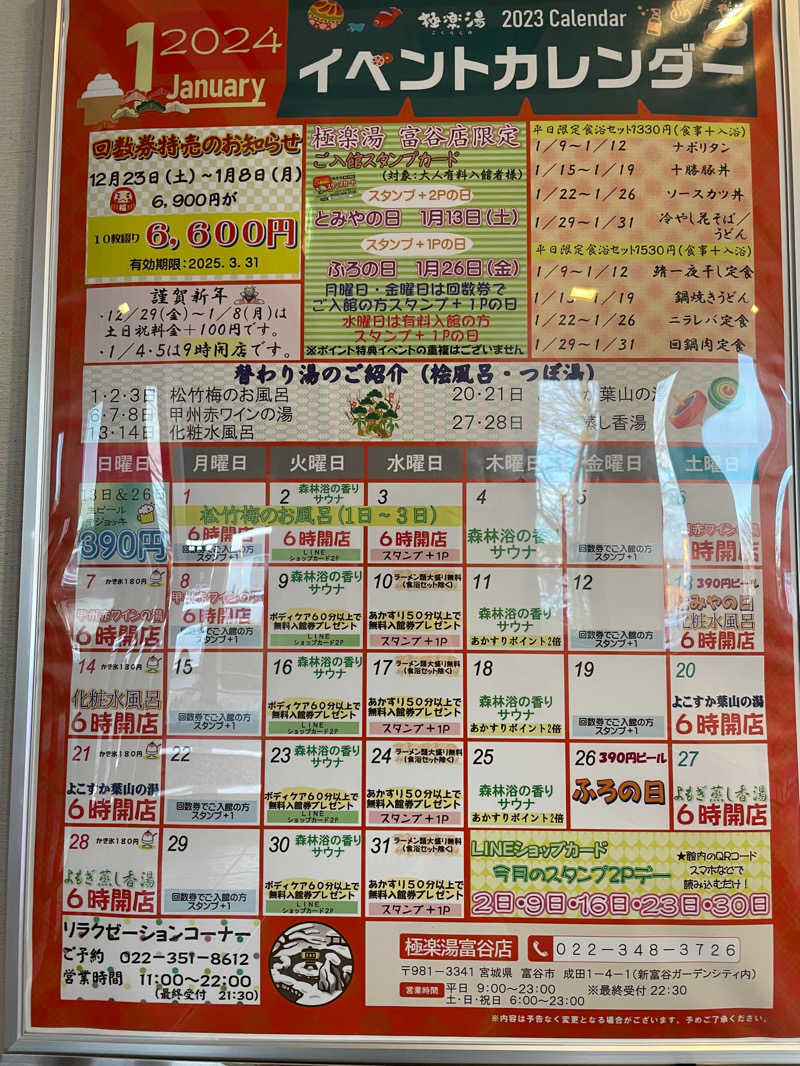 1 2024
January
極楽湯
ごくらくゆ
2023 Calendar
イベントカレンダー
回数券特売のお知らせ
12月23日(土)~1月8日(月)
6,900円が
10枚綴り 6,600円
有効期限:2025.3.31
謹賀新年
・12/29(金)~1/8(月)は
土日祝料金+100円です。
・1/4・5は9時開店です。
極楽湯 富谷店限定
ご入館スタンプカード
(対象:大人有料入館者様)
スタンプ+2Pの日
とみやの日 1月13日(土)
スタンプ+1Pの日
ふろの日 1月26日(金)
月曜日・金曜日は回数券で
ご入館の方スタンプ+1Pの日
水曜日は有料入館の方
スタンプ+1Pの日
※ポイント特典イベントの重複はございません
平日限定食浴セット1330円(食事+入浴)
1/9~1/12 ナポリタン
1/15~1/19 十勝豚丼
1/22~1/26 ソースカツ丼
1/29~1/31 冷やし花そば/うどん
平日限定食浴セット1530円(食事+入浴)
1/9~1/12 鯖一夜干し定食
1/15~1/19 鍋焼きうどん
1/22~1/26 ニラレバ定食
1/29~1/31 回鍋肉定食
替わり湯のご紹介(桧風呂・つぼ湯)
1・2・3日 松竹梅のお風呂
6・7・8日 甲州赤ワインの湯
13・14日 化粧水風呂
20・21日 葉山の湯
27・28日 蒸し香湯
日曜日 月曜日 火曜日 水曜日 木曜日 金曜日 土曜日
13日&26日
生ビール
中ジョッキ
390円
松竹梅のお風呂(1日~3日)
1
6時開店
回数券でご入館の方
スタンプ+1
2 森林浴の香り
サウナ
6時開店
LINE
ショップカード2P
3
6時開店
スタンプ+1P
4
森林浴の香り
サウナ
5
回数券でご入館の方
スタンプ+1
6
甲州赤ワインの湯
6時開店
7 かき氷180円
甲州赤ワインの湯
6時開店
8
甲州赤ワインの湯
6時開店
回数券でご入館の方
スタンプ+1
9 森林浴の香り
サウナ
ボディケア60分以上で
無料入館券プレゼント
LINE
ショップカード2P
10 ラーメン類大盛り無料
(食浴セット除く)
あかすり50分以上で
無料入館券プレゼント
スタンプ+1P
11
森林浴の香り
サウナ
あかすりポイント2倍
12
回数券でご入館の方
スタンプ+1
13 390円ビール
とみやの日
化粧水風呂
6時開店
14 かき氷180円
化粧水風呂
6時開店
15
回数券でご入館の方
スタンプ+1
16 森林浴の香り
サウナ
ボディケア60分以上で
無料入館券プレゼント
LINE
ショップカード2P
17 ラーメン類大盛り無料
(食浴セット除く)
あかすり50分以上で
無料入館券プレゼント
スタンプ+1P
18
森林浴の香り
サウナ
あかすりポイント2倍
19
回数券でご入館の方
スタンプ+1
20
よこすか葉山の湯
6時開店
21 かき氷180円
よこすか葉山の湯
6時開店
22
回数券でご入館の方
スタンプ+1
23 森林浴の香り
サウナ
ボディケア60分以上で
無料入館券プレゼント
LINE
ショップカード2P
24 ラーメン類大盛り無料
(食浴セット除く)
あかすり50分以上で
無料入館券プレゼント
スタンプ+1P
25
森林浴の香り
サウナ
あかすりポイント2倍
26 390円ビール
ふろの日
27
よもぎ蒸し香湯
6時開店
28 かき氷180円
よもぎ蒸し香湯
6時開店
29
回数券でご入館の方
スタンプ+1
30 森林浴の香り
サウナ
ボディケア60分以上で
無料入館券プレゼント
LINE
ショップカード2P
31 ラーメン類大盛り無料
(食浴セット除く)
あかすり50分以上で
無料入館券プレゼント
スタンプ+1P
LINEショップカード
今月のスタンプ2Pデー
★館内のQRコード
スマホなどで
読み込むだけ!
2日・9日・16日・23日・30日
リラクゼーションコーナー
ご予約 022-351-8612
営業時間 11:00~22:00
(最終受付 21:30)
極楽湯富谷店
022-348-3726
〒981-3341 宮城県 富谷市 成田1-4-1(新富谷ガーデンシティ内)
営業時間 平日 9:00~23:00 ※最終受付 22:30
土・日・祝日 6:00~23:00
※内容は予告なく変更となる場合がございます。予めご了承ください。